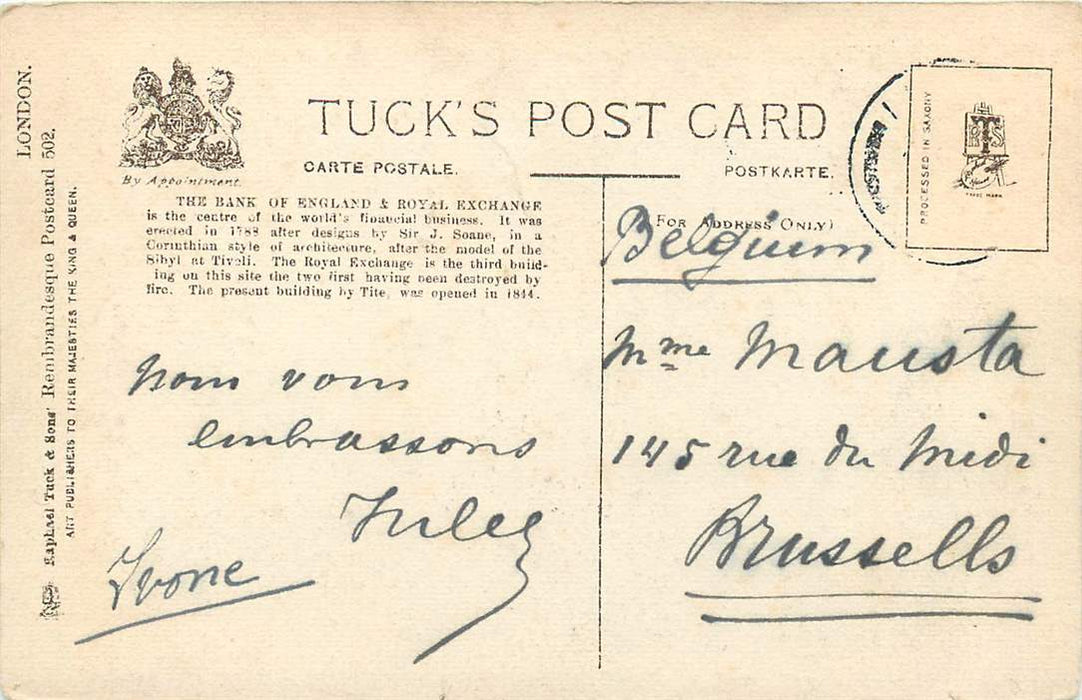 LONDON.
Raphael Tuck & Sons' Rembrandesque Postcard 502.
ART PUBLISHERS TO THEIR MAJESTIES THE KING & QUEEN.
By Appointment.
TUCK'S POST CARD
CARTE POSTALE.
POSTKARTE.
THE BANK OF ENGLAND & ROYAL EXCHANGE
is the centre of the world's financial business. It was
erected in 1788 after designs by Sir J. Soane, in a
Corinthian style of architecture, after the model of the
Sibyl at Tivoli. The Royal Exchange is the third build-
ing on this site the two first having been destroyed by
fire. The present building by Tite, was opened in 1844.
nous vous
embrassons
Jules
Yvone
(FOR ADDRESS ONLY)
Belgium
Mme Mausta
145 rue du Midi
Brussells
PROCESSED IN SAXONY
TRADE MARK